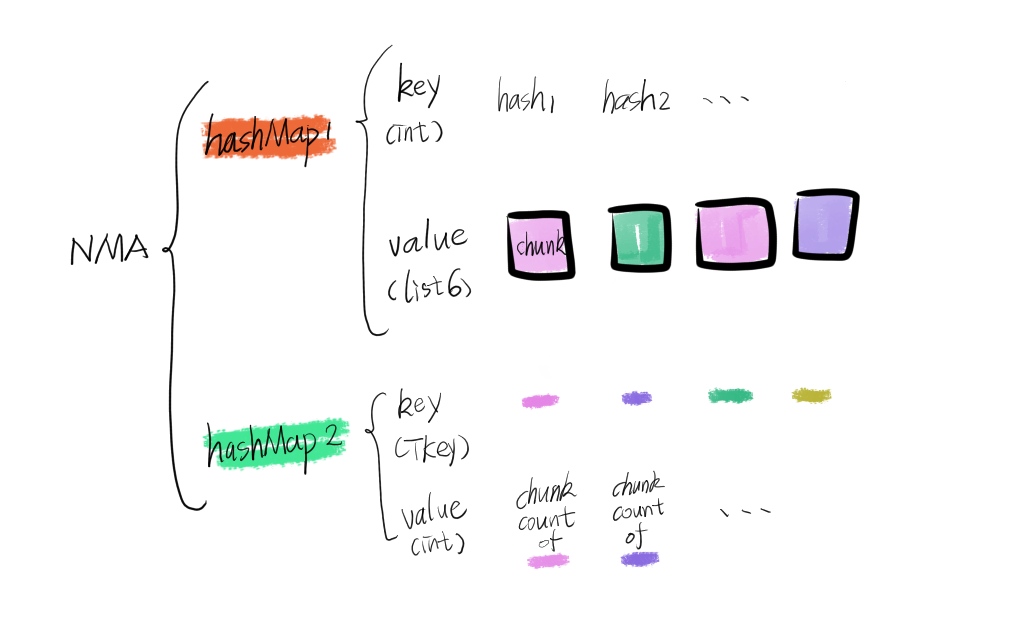 NMA
hashMap1
key
(int)
hash1 hash2 ...
value
(list6)
chunk
hashMap2
key
(TKey)
value
(int)
chunk
count
of
chunk
count
of
...